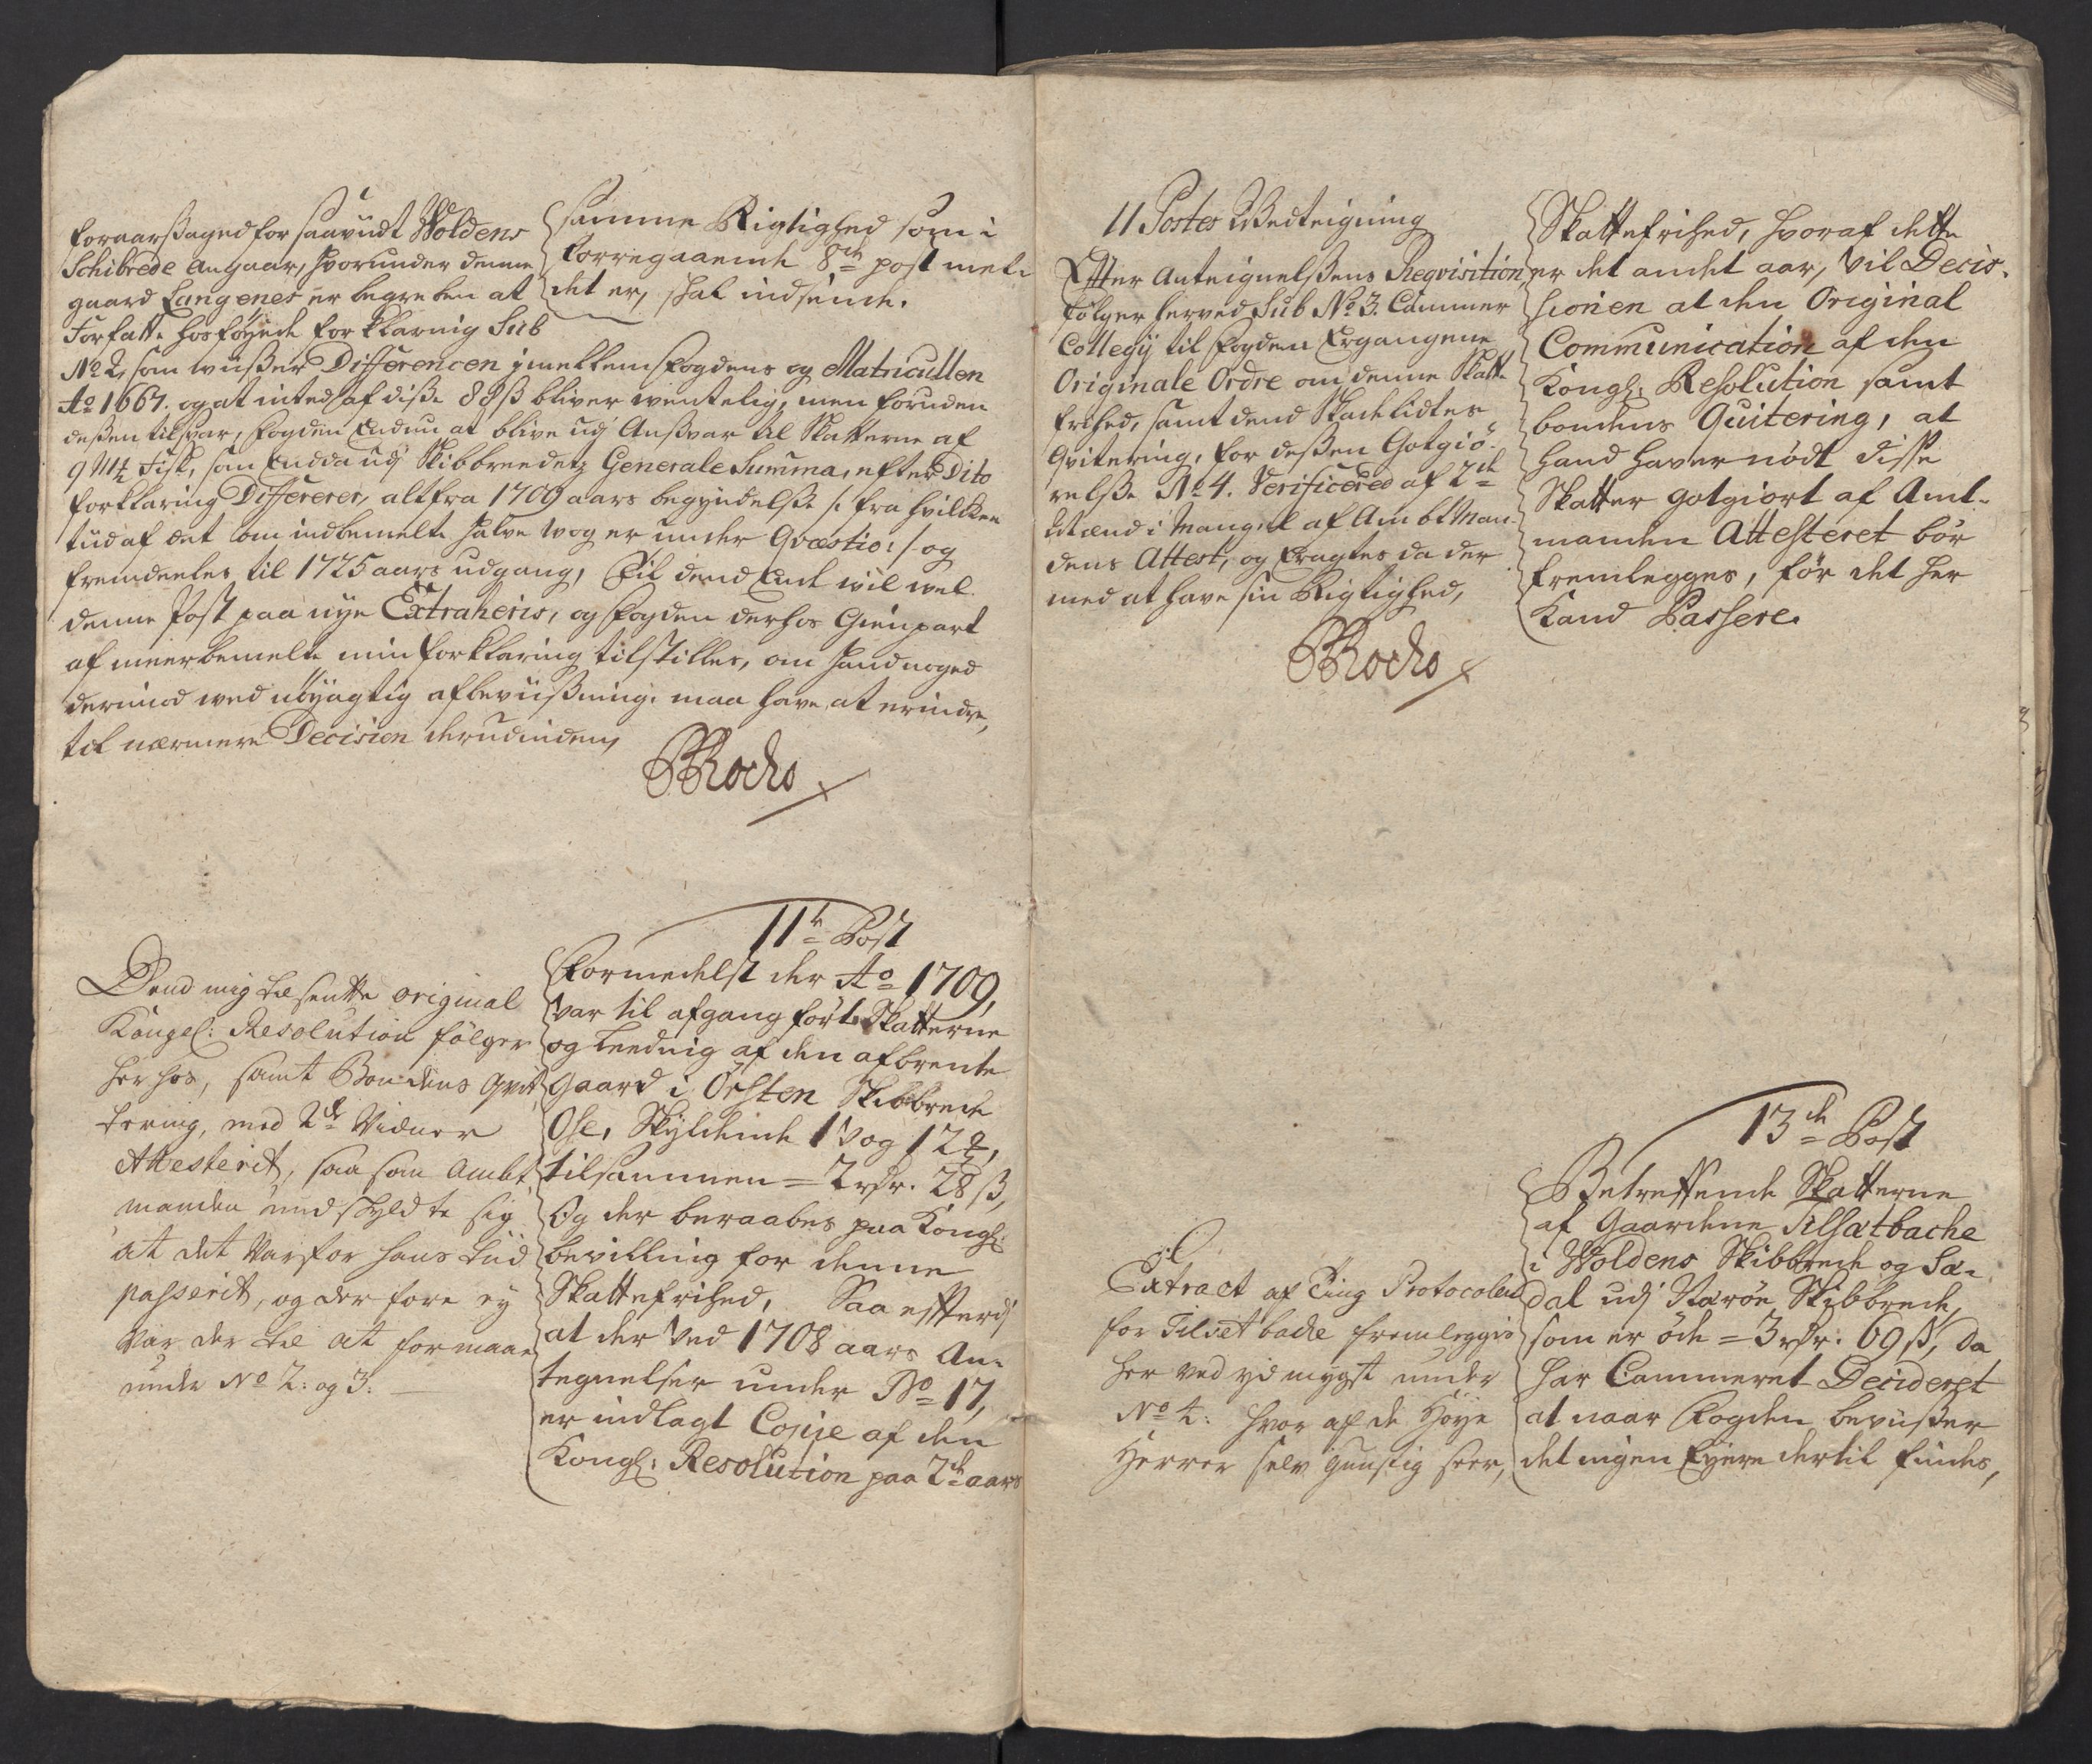 foraarßaged for saavidt Woldens
Schibrede angaar, hvorunder denne
gaard Langenes er begreben at
Forfatte hosföyede forklaring Sub
No 2, som viißer Differencen imellem fogdens og Matricullen
Ao 1667. og at inted af diße 88 ß bliver ventelig, men foruden
deßen tilsvar, fogden Endnu at blive udj Anßvar til Skatterne af
9 M&#x68; fisk, som Endda udj Skibbreedetz Generale Summa, efter Dito
forklaring Differerer, alt fra 1709 aars begyndelße /: fra hvilcken
tiid af det om indbemelte halve wog er under Qvæstio :/ og
fremdeeles til 1725 aars udgang, til dend Ende wil wel
denne Post paa nye Extraheris, og fogden derhos Gienpart
af meerbemelte min forklaring tilstilles, om hand noged
derimod med nöyagtig afbeviißning maa have at erindre,
til nærmere Decision derudinden,
Rochs
samme Rigtighed som i
forregaaende 8de post mel-
det er, skal indsende.
11te Post
Dend mig tilsendte original
Kongel: Resolution fölger
her hos, samt Bondens Qvit-
tering, med 2de Vidner
Attesterit, saa som Ambt
manden undskyldte sig
at det Var for hans tiid
passerit, og derfore ey
Var der til at formaae
under No 2: og 3:
Formedelst der Ao 1709,
var til afgang fört Skatterne
og Leeding af den afbrente
gaard i Örsten Skibbrede
Ose, Skyldende 1 Vog 12 ℔,
tilsammen = 2 rdr. 28 ß,
Og der beraabes paa Kongl:
bevilling for denne
Skattefrihed, Saa efterdj
at der Ved 1708 aars An-
tegnelser under No 17,
er indlagt Copie af den
Kongl: Resolution paa 2de aars
11 Postes Wedteigning
Efter Anteignelßens Reqvisition,
fölger herved Sub No 3. Cammer
Collegij til fogden Ergangene
Originale Ordre om denne Skatte
frihed, samt dend Skadelidtes
Qvitering, for deßen Godgiö-
relße No 4. Verificered af 2de
Mænd i Mangel af Ambtman-
dens Attest, og Eragtes da der
med at have sin Rigtighed,
Rochs
Skattefrihed, hvoraf dette
er det andet aar, Vil Decis-
sionen at den Original
Communication af den
Kongl: Resolution samt
bondens Quitering, at
hand haver nödt disse
Skatter godgiort af Amt-
manden Attesteret bör
fremlegges, för det her
Kand Passere.
13de Post
Extract af Ting Protocolen
for Tilset bache fremleggis
her ved ydmygst under
No 4: hvor af de Höye
Herrer selv gunstig seer,
Betreffende Skatterne
af Gaardene Tilsætbache
i Woldens Skibbrede og Sæ-
dal udj Næröe Skibbrede,
som er öde = 3 rdr. 69 ß, da
har Cammeret Decideret
at naar Fogden beviißer
det ingen Eyere dertil findes,